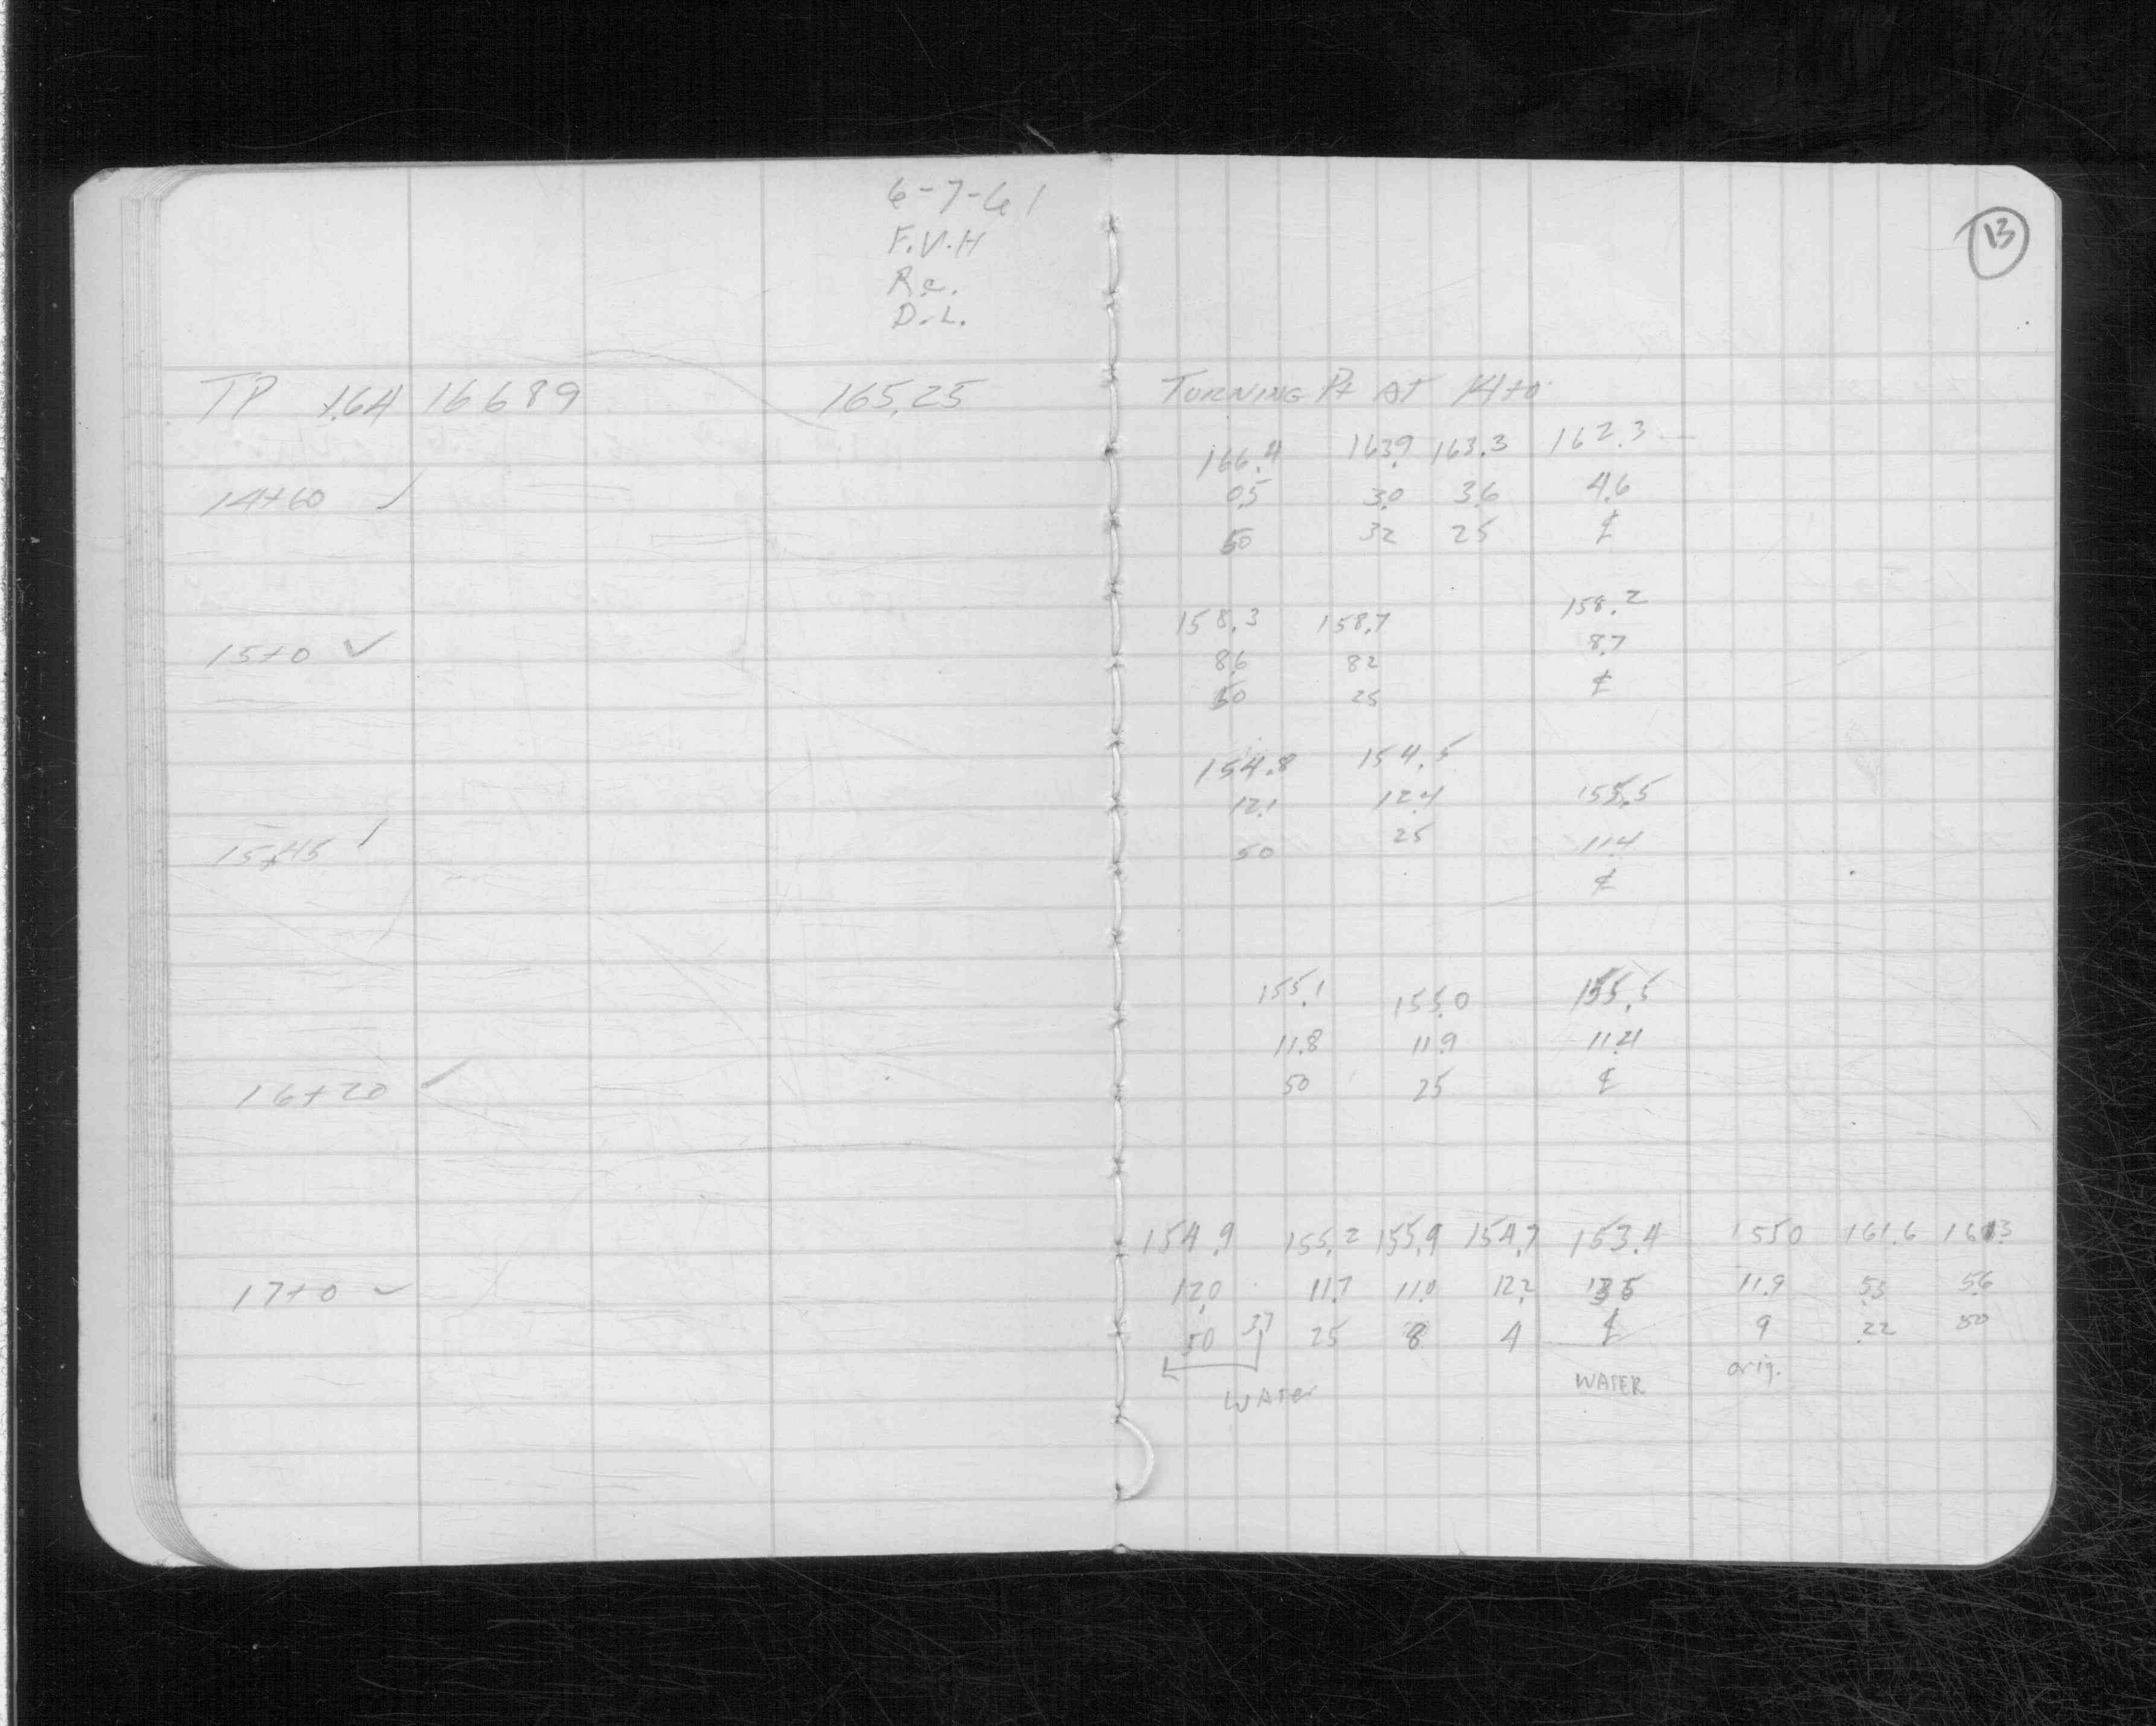 6-7-61
F.V.H
R.C.
D.L.
13
TP 1.64 166 89 165.25
TURNING Pt AT 14+0
166.4 163.9 163.3 162.3
14+60 ✓ 0.5 3.0 3.6 4.6
50 32 25 ℄
158.3 158.7 158.2
15+0 ✓ 8.6 8.2 8.7
50 25 ℄
154.8 154.5
12.1 12.4 155.5
15+45 ✓ 50 25 11.4
℄
155.1 155.0 155.5
11.8 11.9 11.4
16+20 ✓ 50 25 ℄
154.9 155.2 155.9 154.7 153.4 155.0 161.6 161.3
17+0 ✓ 12.0 11.7 11.0 12.2 13.5 11.9 5.3 5.6
50 37 25 8 4 ℄ 9 22 50
WATER WATER orig.